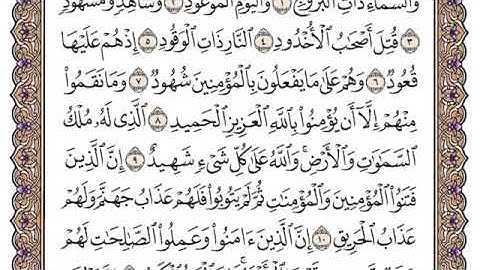 وَٱلسَّمَآءِ ذَاتِ ٱلْبُرُوجِ ١ وَٱلْيَوْمِ ٱلْمَوْعُودِ ٢ وَشَاهِدٍ وَمَشْهُودٍ
٣ قُتِلَ أَصْحَٰبُ ٱلْأُخْدُودِ ٤ ٱلنَّارِ ذَاتِ ٱلْوَقُودِ ٥ إِذْ هُمْ عَلَيْهَا
قُعُودٌ ٦ وَهُمْ عَلَىٰ مَا يَفْعَلُونَ بِٱلْمُؤْمِنِينَ شُهُودٌ ٧ وَمَا نَقَمُوا۟
مِنْهُمْ إِلَّآ أَن يُؤْمِنُوا۟ بِٱللَّهِ ٱلْعَزِيزِ ٱلْحَمِيدِ ٨ ٱلَّذِى لَهُۥ مُلْكُ
ٱلسَّمَٰوَٰتِ وَٱلْأَرْضِ ۚ وَٱللَّهُ عَلَىٰ كُلِّ شَىْءٍ شَهِيدٌ ٩ إِنَّ ٱلَّذِينَ
فَتَنُوا۟ ٱلْمُؤْمِنِينَ وَٱلْمُؤْمِنَٰتِ ثُمَّ لَمْ يَتُوبُوا۟ فَلَهُمْ عَذَابُ جَهَنَّمَ وَلَهُمْ
عَذَابُ ٱلْحَرِيقِ ١٠ إِنَّ ٱلَّذِينَ ءَامَنُوا۟ وَعَمِلُوا۟ ٱلصَّٰلِحَٰتِ لَهُمْ